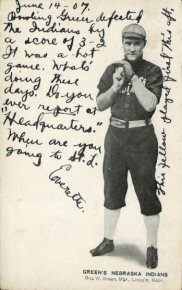 June 14-07.
Bowling Green defeated
the Indians by
a score of 3-
It was a hot
game. Whats'
doing these
days. Do you
ever report at
"Headquarters."
When are you
going to St. L.
Everett.
This fellow played first this aft.
GREEN'S NEBRASKA INDIANS
Guy W. Green, Mgr., Lincoln, Nebr.